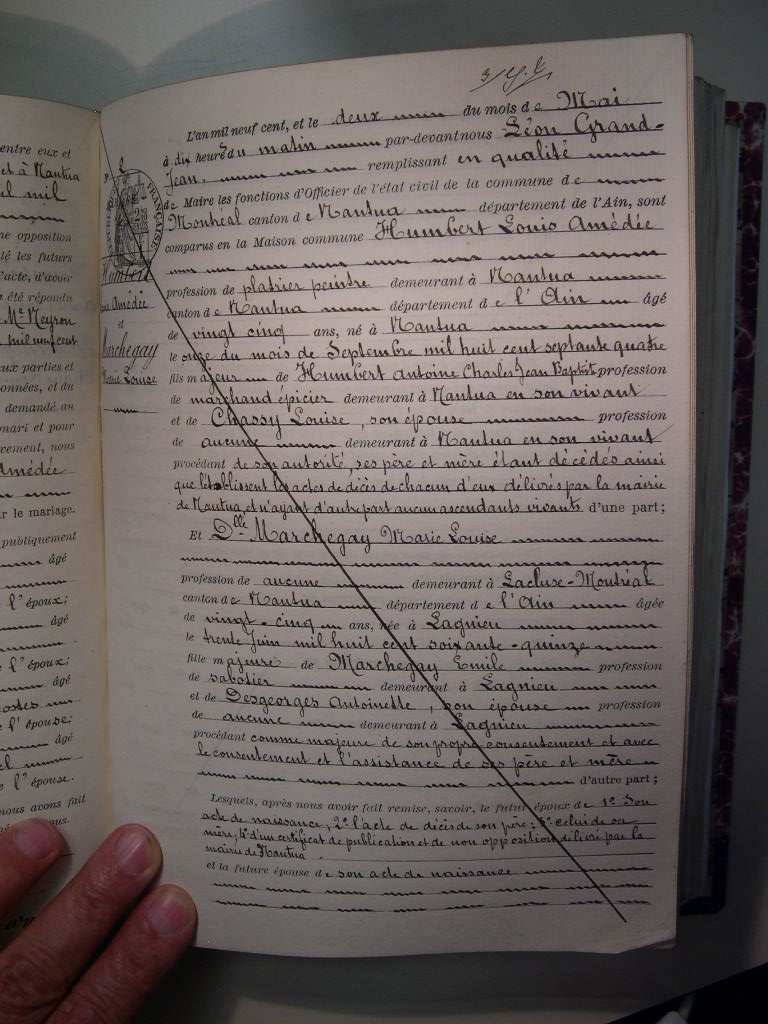 entre eux et
et à Nantua
mil
une opposition
lé les futurs
l'acte, d'avoir
a été répondu
Me Neyron
mil neuf cent
aux parties et
données, et du
demandé au
mari et pour
vement, nous
Amédée
r le mariage.
publiquement
âgé
l'époux;
âgé
l'époux;
âgé
l'épouse;
âgé
l'épouse.
nous avons fait
ous.
RÉPUBLIQUE FRANÇAISE
Humbert
Amédée
et
Marchegay
Marie Louise
L'an mil neuf cent, et le deux du mois de Mai
à dix heures du matin par-devant nous Léon Grand-
Jean, remplissant en qualité
de Maire les fonctions d'Officier de l'état civil de la commune de
Montréal canton de Nantua département de l'Ain, sont
comparus en la Maison commune Humbert Louis Amédée
profession de platrier peintre demeurant à Nantua
canton de Nantua département de l'Ain âgé
de vingt cinq ans, né à Nantua
le onze du mois de Septembre mil huit cent septante quatre
fils majeur de Humbert Antoine Charles Jean Baptist profession
de marchand épicier demeurant à Nantua en son vivant
et de Chassy Louise, son épouse profession
de aucune demeurant à Nantua en son vivant
procédant de son autorité, ses père et mère étant décédés ainsi
que l'établissent les actes de décès de chacun d'eux délivrés par la mairie
de Nantua, et n'ayant d'autre part aucun ascendants vivants d'une part;
Et Dlle Marchegay Marie Louise
profession de aucune demeurant à Lacluse-Montréal
canton de Nantua département de l'Ain âgée
de vingt-cinq ans, née à Lagnieu
le trente Juin mil huit cent soixante-quinze
fille majeure de Marchegay Emile profession
de sabotier demeurant à Lagnieu
et de Desgeorges Antoinette, son épouse profession
de aucune demeurant à Lagnieu
procédant comme majeure de son propre consentement et avec
le consentement et l'assistance de ses père et mère
d'autre part;
Lesquels, après nous avoir fait remise, savoir, le futur époux de 1° Son
acte de naissance, 2° l'acte de décès de son père; 3° celui de sa
mère; 4° d'un certificat de publication et de non opposition délivré par la
mairie de Nantua
et la future épouse de son acte de naissance